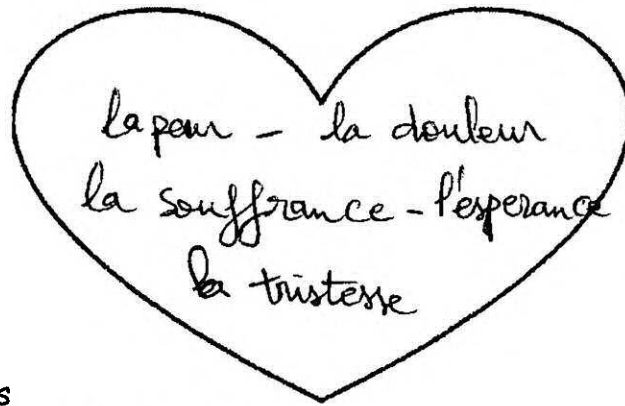 la peur - la douleur
la souffrance - l'esperance
la tristesse
s